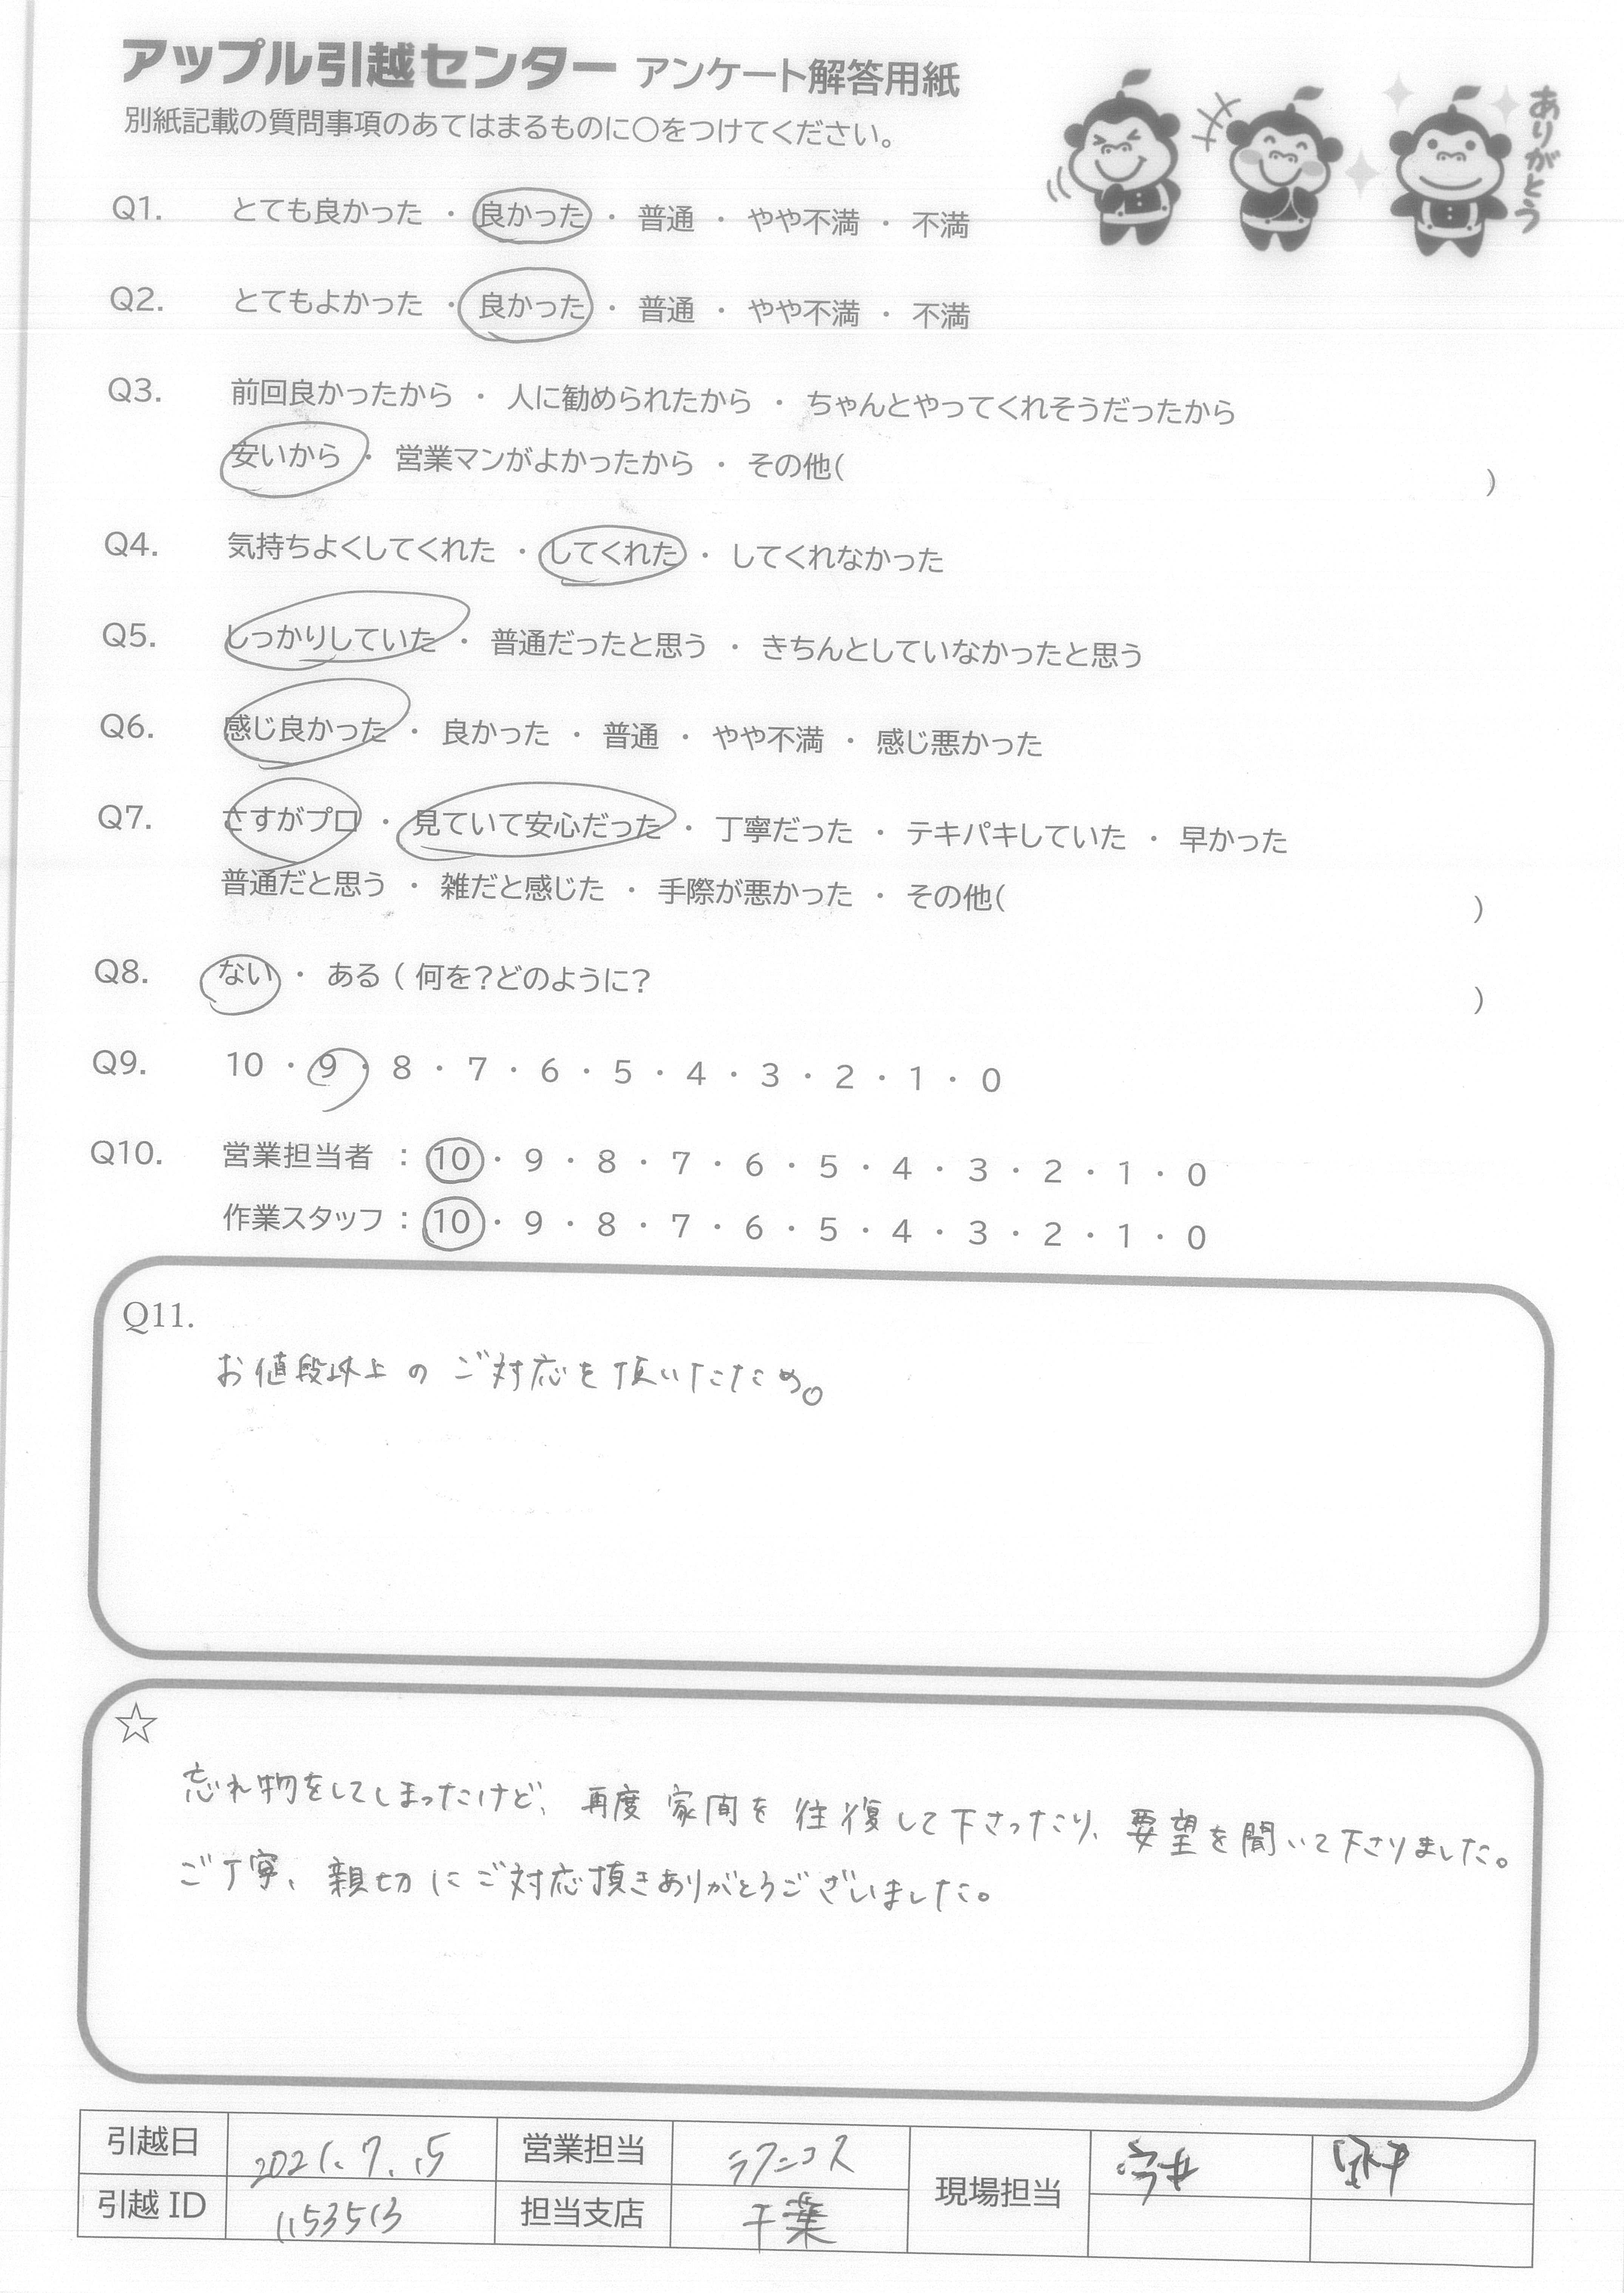 アップル引越センター アンケート解答用紙
別紙記載の質問事項のあてはまるものに○をつけてください。
ありがとう
Q1. とても良かった ・ 良かった ・ 普通 ・ やや不満 ・ 不満
Q2. とてもよかった ・ 良かった ・ 普通 ・ やや不満 ・ 不満
Q3. 前回良かったから ・ 人に勧められたから ・ ちゃんとやってくれそうだったから
安いから ・ 営業マンがよかったから ・ その他( )
Q4. 気持ちよくしてくれた ・ してくれた ・ してくれなかった
Q5. しっかりしていた ・ 普通だったと思う ・ きちんとしていなかったと思う
Q6. 感じ良かった ・ 良かった ・ 普通 ・ やや不満 ・ 感じ悪かった
Q7. さすがプロ ・ 見ていて安心だった ・ 丁寧だった ・ テキパキしていた ・ 早かった
普通だと思う ・ 雑だと感じた ・ 手際が悪かった ・ その他( )
Q8. ない ・ ある ( 何を?どのように? )
Q9. 10 ・ 9 ・ 8 ・ 7 ・ 6 ・ 5 ・ 4 ・ 3 ・ 2 ・ 1 ・ 0
Q10. 営業担当者 : 10 ・ 9 ・ 8 ・ 7 ・ 6 ・ 5 ・ 4 ・ 3 ・ 2 ・ 1 ・ 0
作業スタッフ : 10 ・ 9 ・ 8 ・ 7 ・ 6 ・ 5 ・ 4 ・ 3 ・ 2 ・ 1 ・ 0
Q11.
お値段以上の ご対応を頂いたため。
☆
忘れ物をしてしまったけど、再度 家間を 往復して下さったり、要望を聞いて下さりました。
ご丁寧、親切にご対応頂きありがとうございました。
引越日 2021.7.15 営業担当 現場担当
引越 ID 1153513 担当支店 千葉